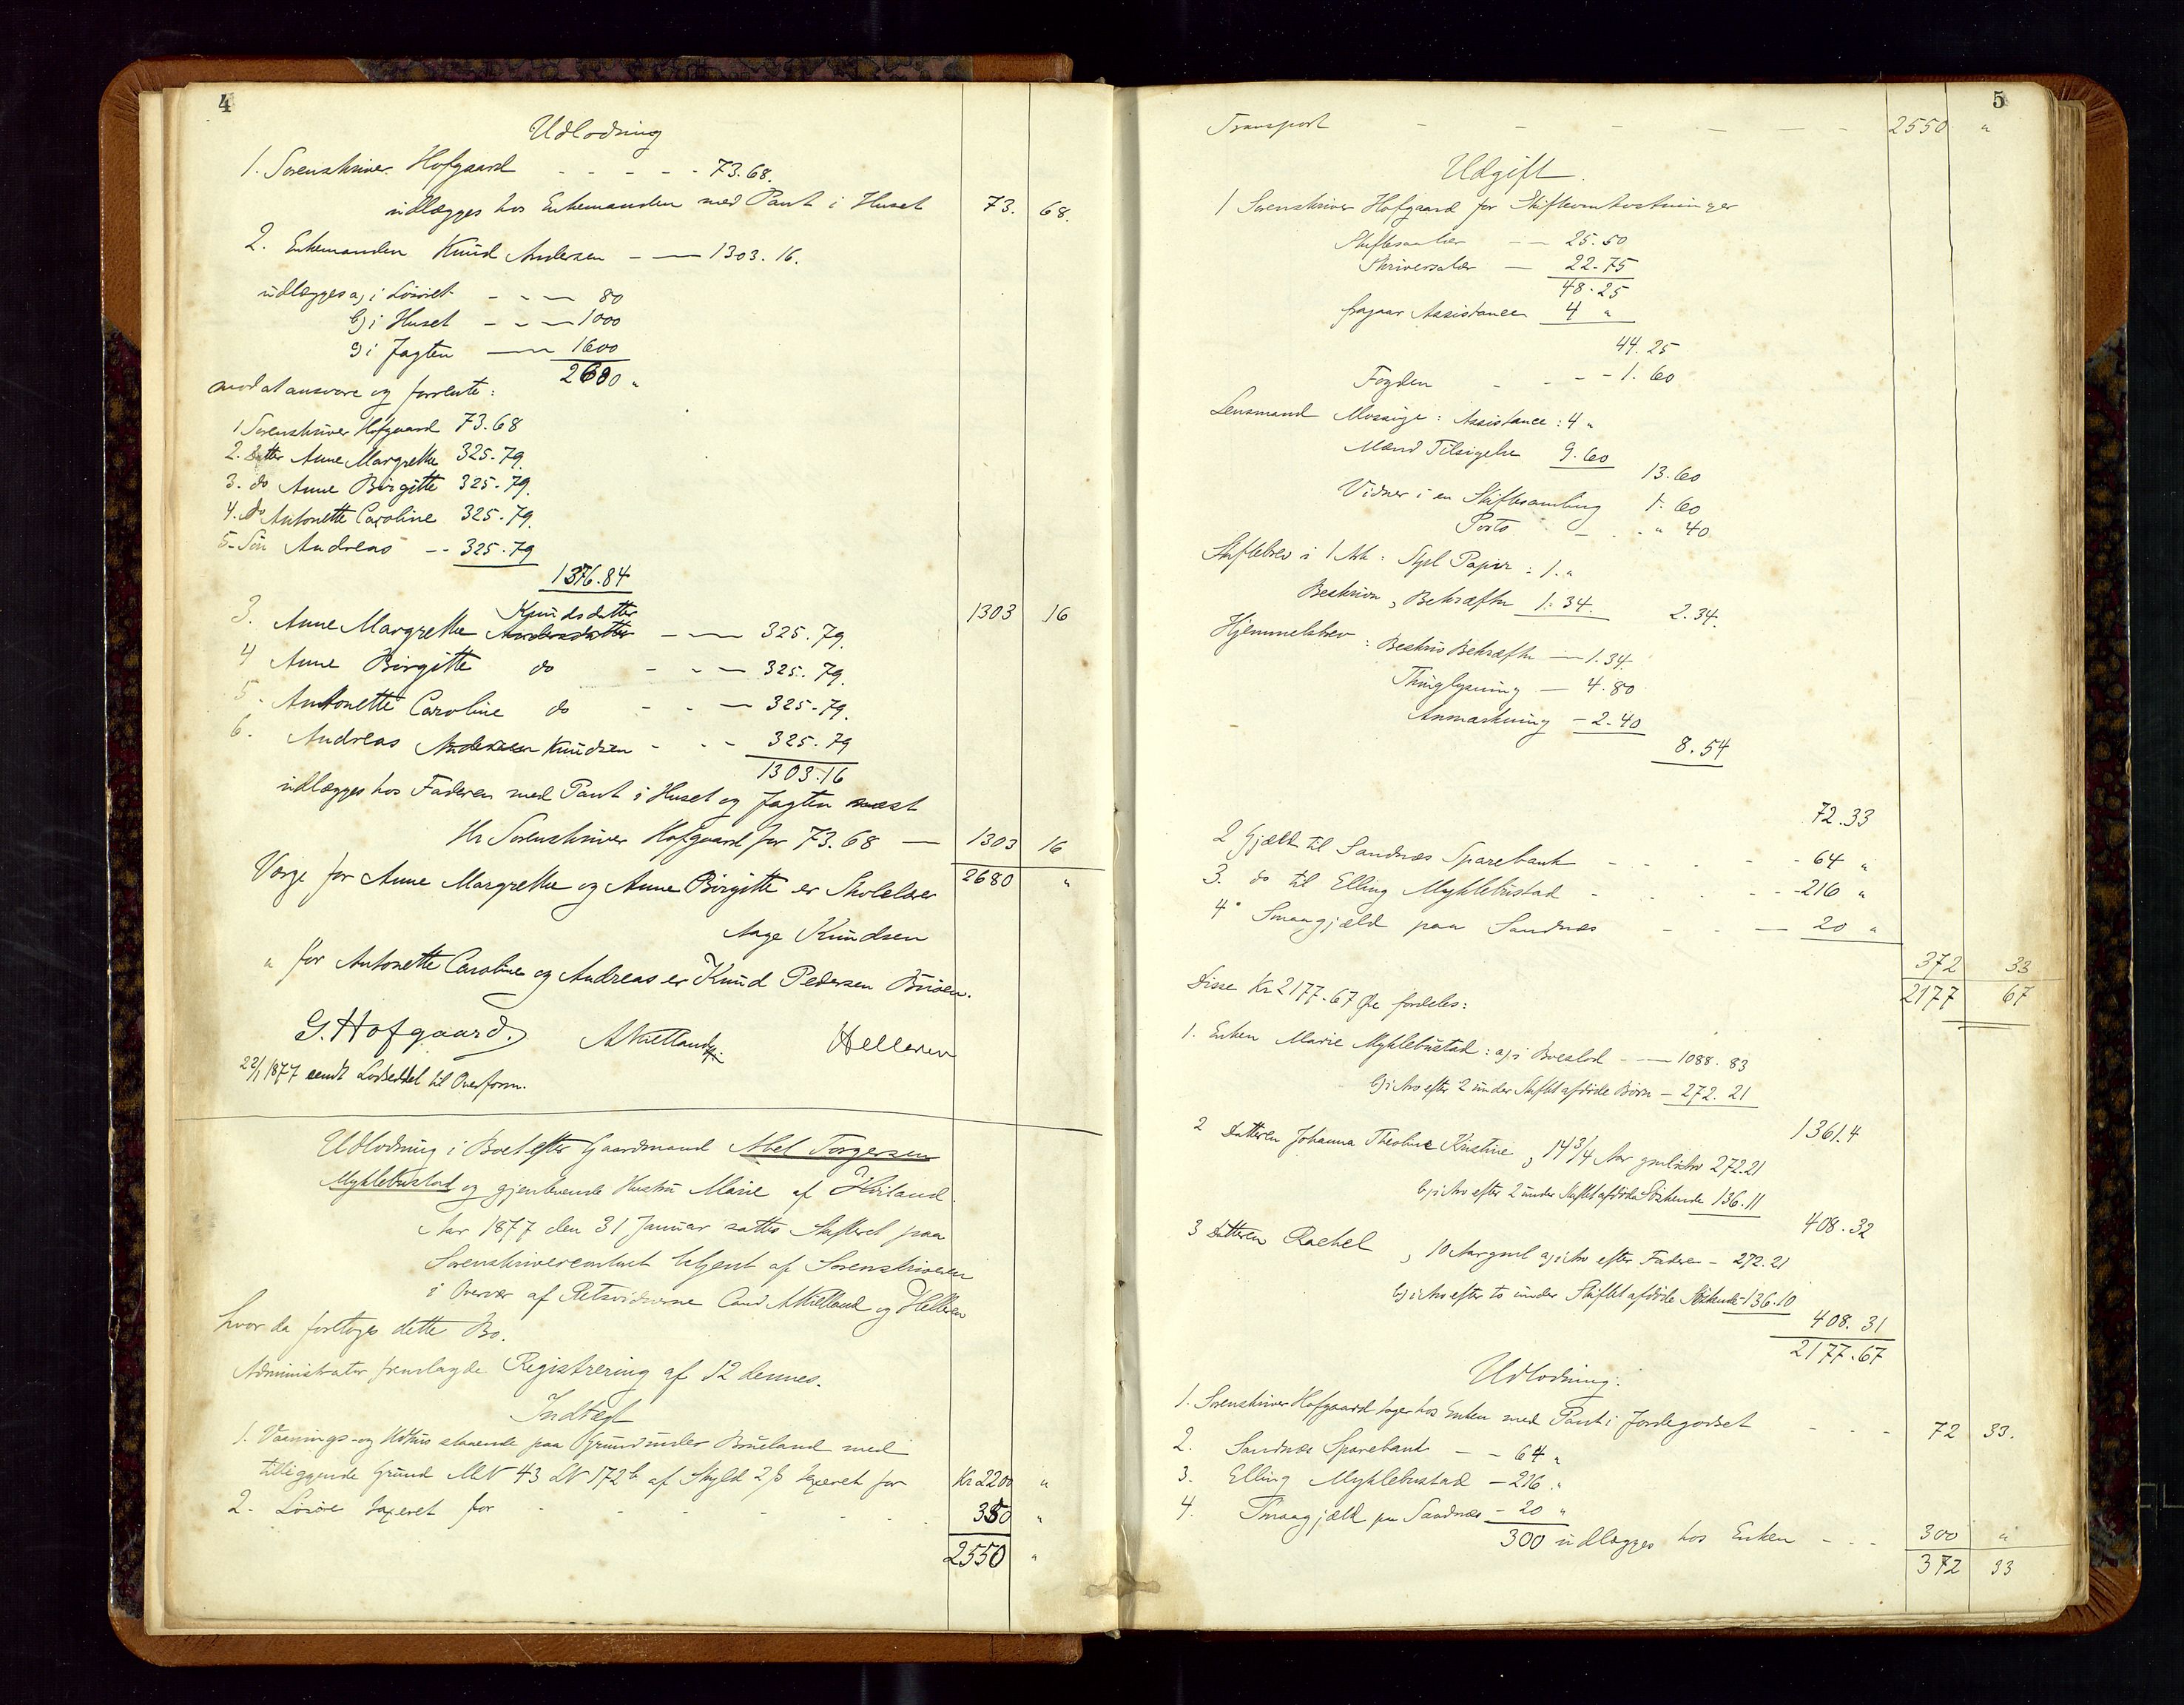 4
Udlodning
1. Sorenskriver Hofgaard - - - - - 73.68.
udlægges hos Enkemanden med Pant i Huset 73. 68.
2. Enkemanden Knud Andersen - — 1303. 16.
udlægges a) i Løsöret - - — 80
b) i Huset - - — 1000
c) i Jagten — 1600
2680 "
mod at ansvare og forrente:
1 Sorenskriver Hofgaard 73.68
2. Datter Anne Margrethe 325.79.
3. do Anne Birgitte 325.79.
4. do Antonette Caroline 325.79.
5. Sön Andreas -- 325.79
1376.84
1303 16
Knudsdatter
3. Anne Margrethe Andersdatter - — 325.79.
4 Anne Birgitte do - - — 325.79.
5. Antonette Caroline do - - — 325.79.
6. Andreas Andersen Knudsen - - - 325.79
1303.16
udlægges hos Faderen med Pant i Huset og Jagten næst
Hr Sorenskriver Hofgaard for 73.68 — 1303 16
2680 "
Værge for Anne Margrethe og Anne Birgitte er Skolelærer
Aage Knudsen
" for Antonette Caroline og Andreas er Knud Pedersen Brüsen.
G. Hofgaard. AKielland Helleren
22/1 1877 sendt Lodseddel til Overform.
Udlodning i Boet efter Gaardmand Abel Torgersen
Myklebustad og gjenlevende Hustru Marie af Höiland.
Aar 1877 den 31 Januar sattes Skifteret paa
Sorenskrivercontoret betjent af Sorenskriveren
i Overvær af Retsvidnerne Cand AKielland og Helleren
hvor da foretoges dette Bo.
Administrator fremlagde Registrering af 12 dennes.
Indtægt
1. Vaanings- og Udhus staaende paa Grund under Brueland med
tilliggende Grund MN 43 LN 172b af Skyld 2 ß taxeret for Kr 2200 "
2. Lösöre taxeret for - - - - - - 350 "
2550 "
5
Transport - - - - - - - 2550 "
Udgift.
1 Sorenskriver Hofgaard for Skifteomkostninger
Skiftesalær - — 25.50
Skriversalær — 22.75
48.25
fragaar Assistancen 4 "
44.25
Fogden - - - - 1.60
Lensmand Mossige: Assistance: 4 "
Mænd Tilsigelse 9.60
13.60
Vidner i en Skiftesamling 1.60
Porto - - - " 40
Skiftebrev i 1 Ark: Stpl Papir: 1. "
Beskrivn, Bekræftn 1.34. 2.34.
Hjemmelsbrev: Beskriv Bekræftn — 1.34.
Thinglysning — 4.80
Anmærkning — 2.40
8.54
72.33
2 Gjæld til Sandnæs Sparebank - - - - - 64 "
3. do til Elling Myklebustad - - - - - 216 "
4. Smaagjæld paa Sandnæs - - — 20 "
372 33
2177 67
Disse Kr 2177.67 Öre fordeles:
1. Enken Marie Myklebustad: a) i Boeslod - — 1088.83
b) i Arv efter 2 under Skiftet afdöde Börn - 272.21
1361.4
2 Datteren Johanna Theoline Kristine, 14 3/4 Aar gml i Arv 272.21
b) i Arv efter 2 under Skiftet afdöde Söskende 136.11
408.32
3 Datteren Rachel, 10 Aar gml a) i Arv efter Faderen - 272.21
b) i Arv efter to under Skiftet afdöde Söskende 136.10
408.31
2177.67
Udlodning:
1. Sorenskriver Hofgaard tages hos Enken med Pant i Jordegodset - - - 72 33.
2. Sandnæs Sparebank - - 64 "
3. Elling Myklebustad - 216 "
4. Smaagjæld paa Sandnæs - 20 "
300 udlægges hos Enken - - - 300 "
372 33